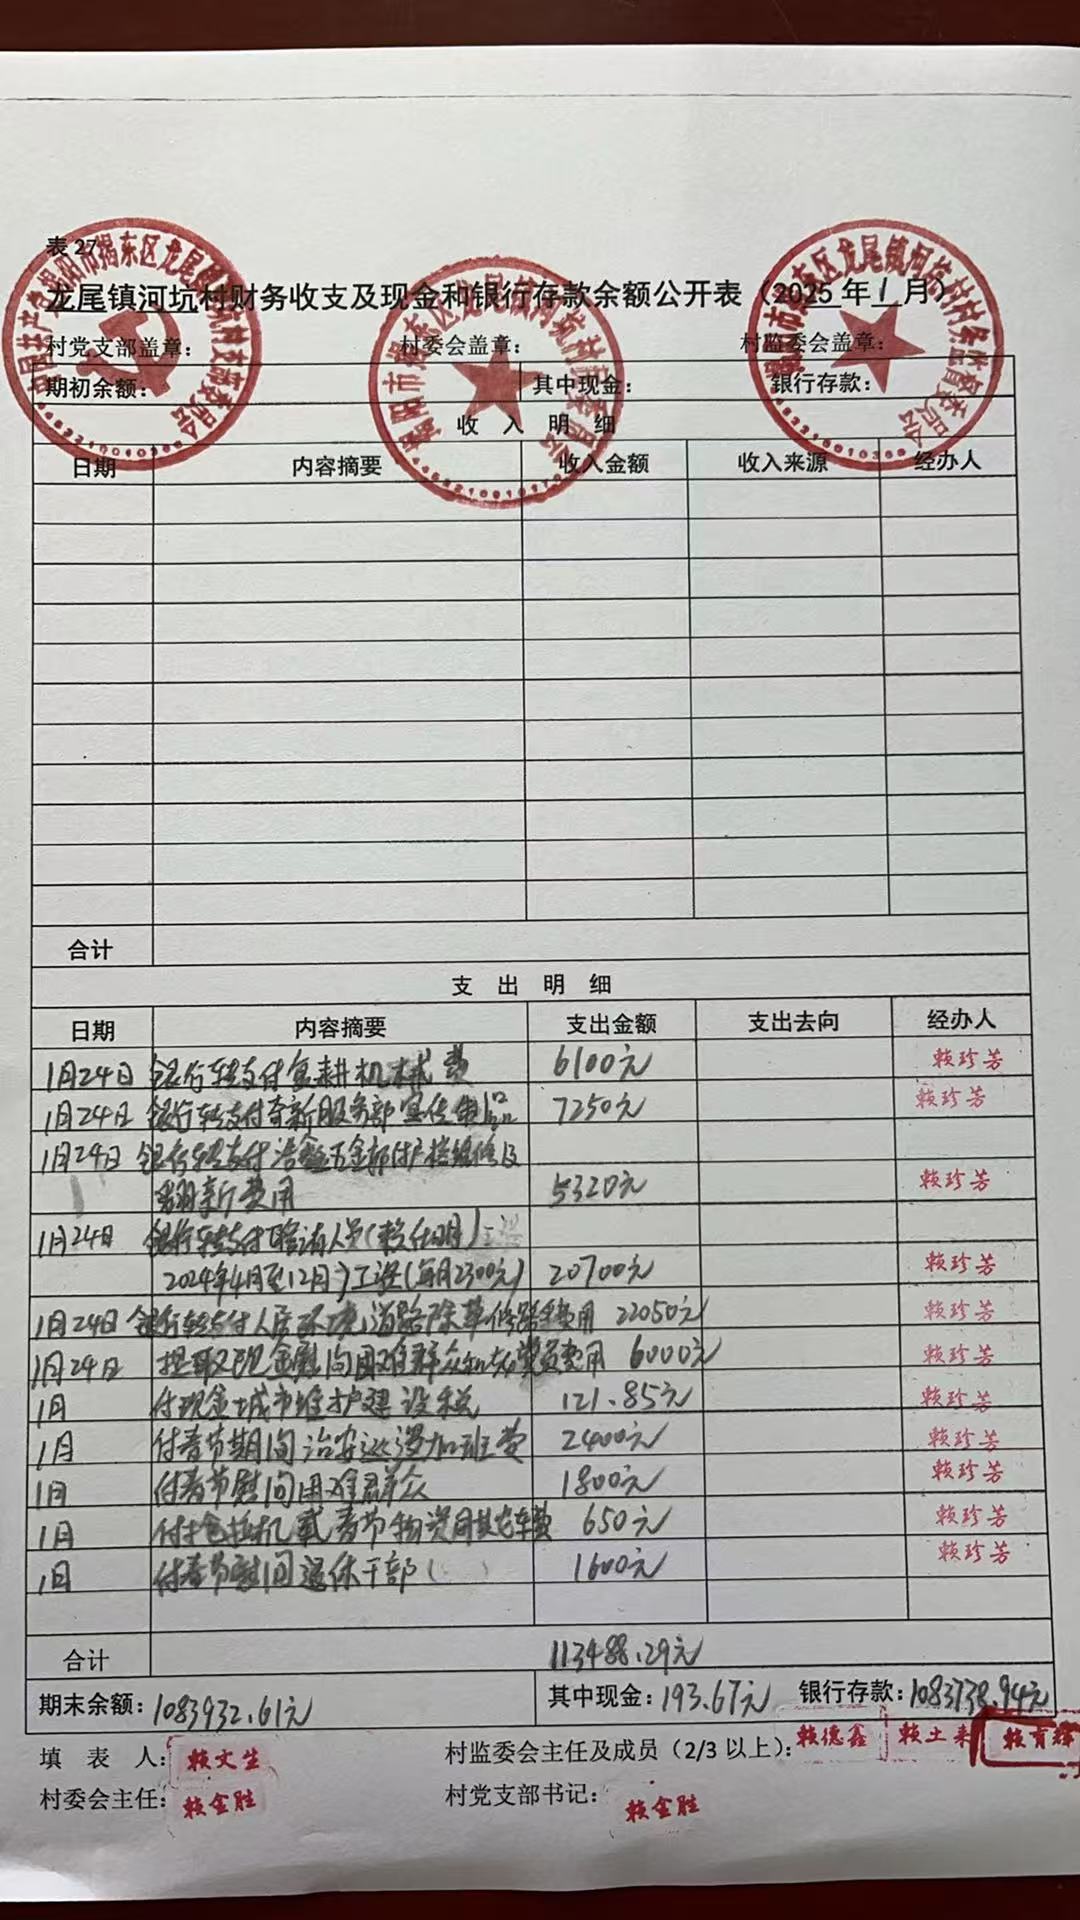 表 27
龙尾镇河坑村财务收支及现金和银行存款余额公开表（2025年1月）
村党支部盖章： 村委会盖章： 村监委会盖章：
期初余额： 其中现金： 银行存款：
收 入 明 细
日期 内容摘要 收入金额 收入来源 经办人
合计
支 出 明 细
日期 内容摘要 支出金额 支出去向 经办人
1月24日 银行转支付复耕机械费 6100元 赖珍芳
1月24日 银行转支付奇新服务部宣传制品 7250元 赖珍芳
1月24日 银行转支付浩鑫五金部付户控维修及
翻新费用 5320元 赖珍芳
1月24日 银行转支付聘请人员(赖仕明)
2024年4月至12月)工资(每月2300元) 20700元 赖珍芳
1月24日 银行转支付人居环境,道路除草修路等费用 22050元 赖珍芳
1月24日 提取现金慰问困难群众和老党员费用 6000元 赖珍芳
1月 付现金城市维护建设税 121.85元 赖珍芳
1月 付春节期间治安巡逻加班费 2400元 赖珍芳
1月 付春节慰问困难群众 1800元 赖珍芳
1月 付拖拉机载春节物资用其车费 650元 赖珍芳
1月 付春节慰问退休干部 1600元 赖珍芳
合计 113488.29元
期末余额：1083932.61元 其中现金：193.67元 银行存款：1083738.94元
填 表 人： 赖文生 村监委会主任及成员（2/3 以上）： 赖德鑫 赖土来 赖育辉
村委会主任： 赖金胜 村党支部书记： 赖金胜